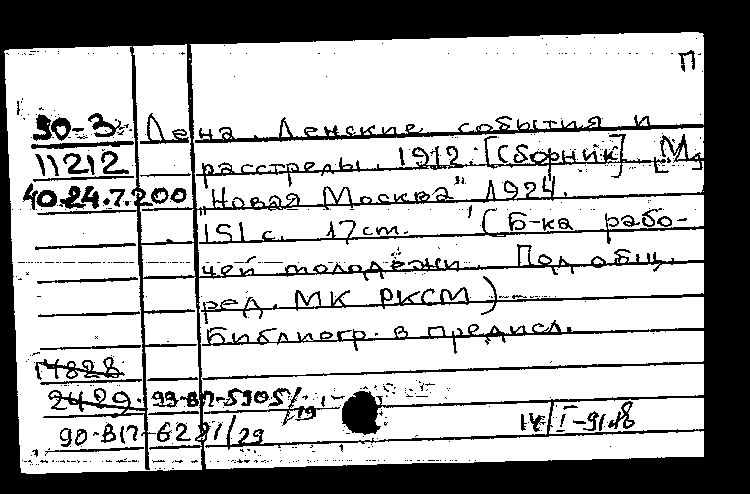 П
30-3 Лена. Ленские события и
11212 расстрелы. 1912. [Сборник] [М.]
40.24.7.200 „Новая Москва" 1924.
151 с. 17 cm. (Б-ка рабо-
чей молодёжи. Под общ.
ред. МК РКСМ)
Библиогр. в предисл.
14828
2429. 93-ВП-5905/19
90-ВП-6281/29